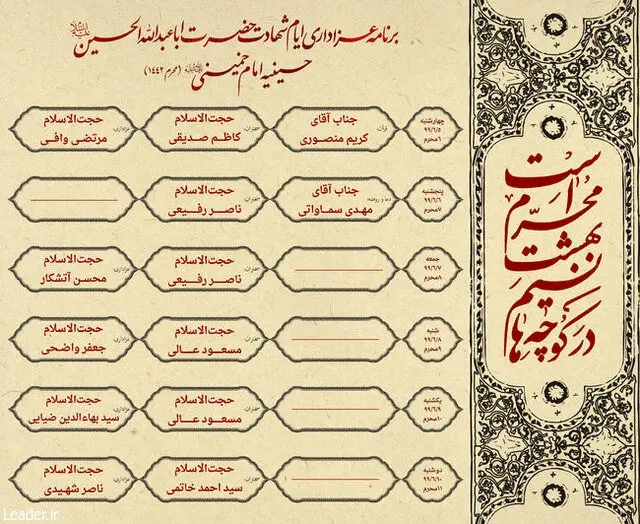 برنامه عزاداری ایام شهادت حضرت اباعبدالله الحسین
حسینیه امام خمینی (محرم ۱۴۴۲)
چهارشنبه
۹۹/۶/۵
۶محرم
قرآن:
جناب آقای
کریم منصوری
سخنران:
حجت‌الاسلام
کاظم صدیقی
عزاداری:
حجت‌الاسلام
مرتضی وافی
پنجشنبه
۹۹/۶/۶
۷محرم
دعا و روضه:
جناب آقای
مهدی سماواتی
سخنران:
حجت‌الاسلام
ناصر رفیعی
جمعه
۹۹/۶/۷
۸محرم
سخنران:
حجت‌الاسلام
ناصر رفیعی
عزاداری:
حجت‌الاسلام
محسن آتشکار
شنبه
۹۹/۶/۸
۹محرم
سخنران:
حجت‌الاسلام
مسعود عالی
عزاداری:
حجت‌الاسلام
جعفر واضحی
یکشنبه
۹۹/۶/۹
۱۰محرم
سخنران:
حجت‌الاسلام
مسعود عالی
عزاداری:
حجت‌الاسلام
سید بهاءالدین ضیایی
دوشنبه
۹۹/۶/۱۰
۱۱محرم
سخنران:
حجت‌الاسلام
سید احمد خاتمی
عزاداری:
حجت‌الاسلام
ناصر شهیدی
محرم است
نسیم بهشت
در کوچه‌ها
Leader.ir